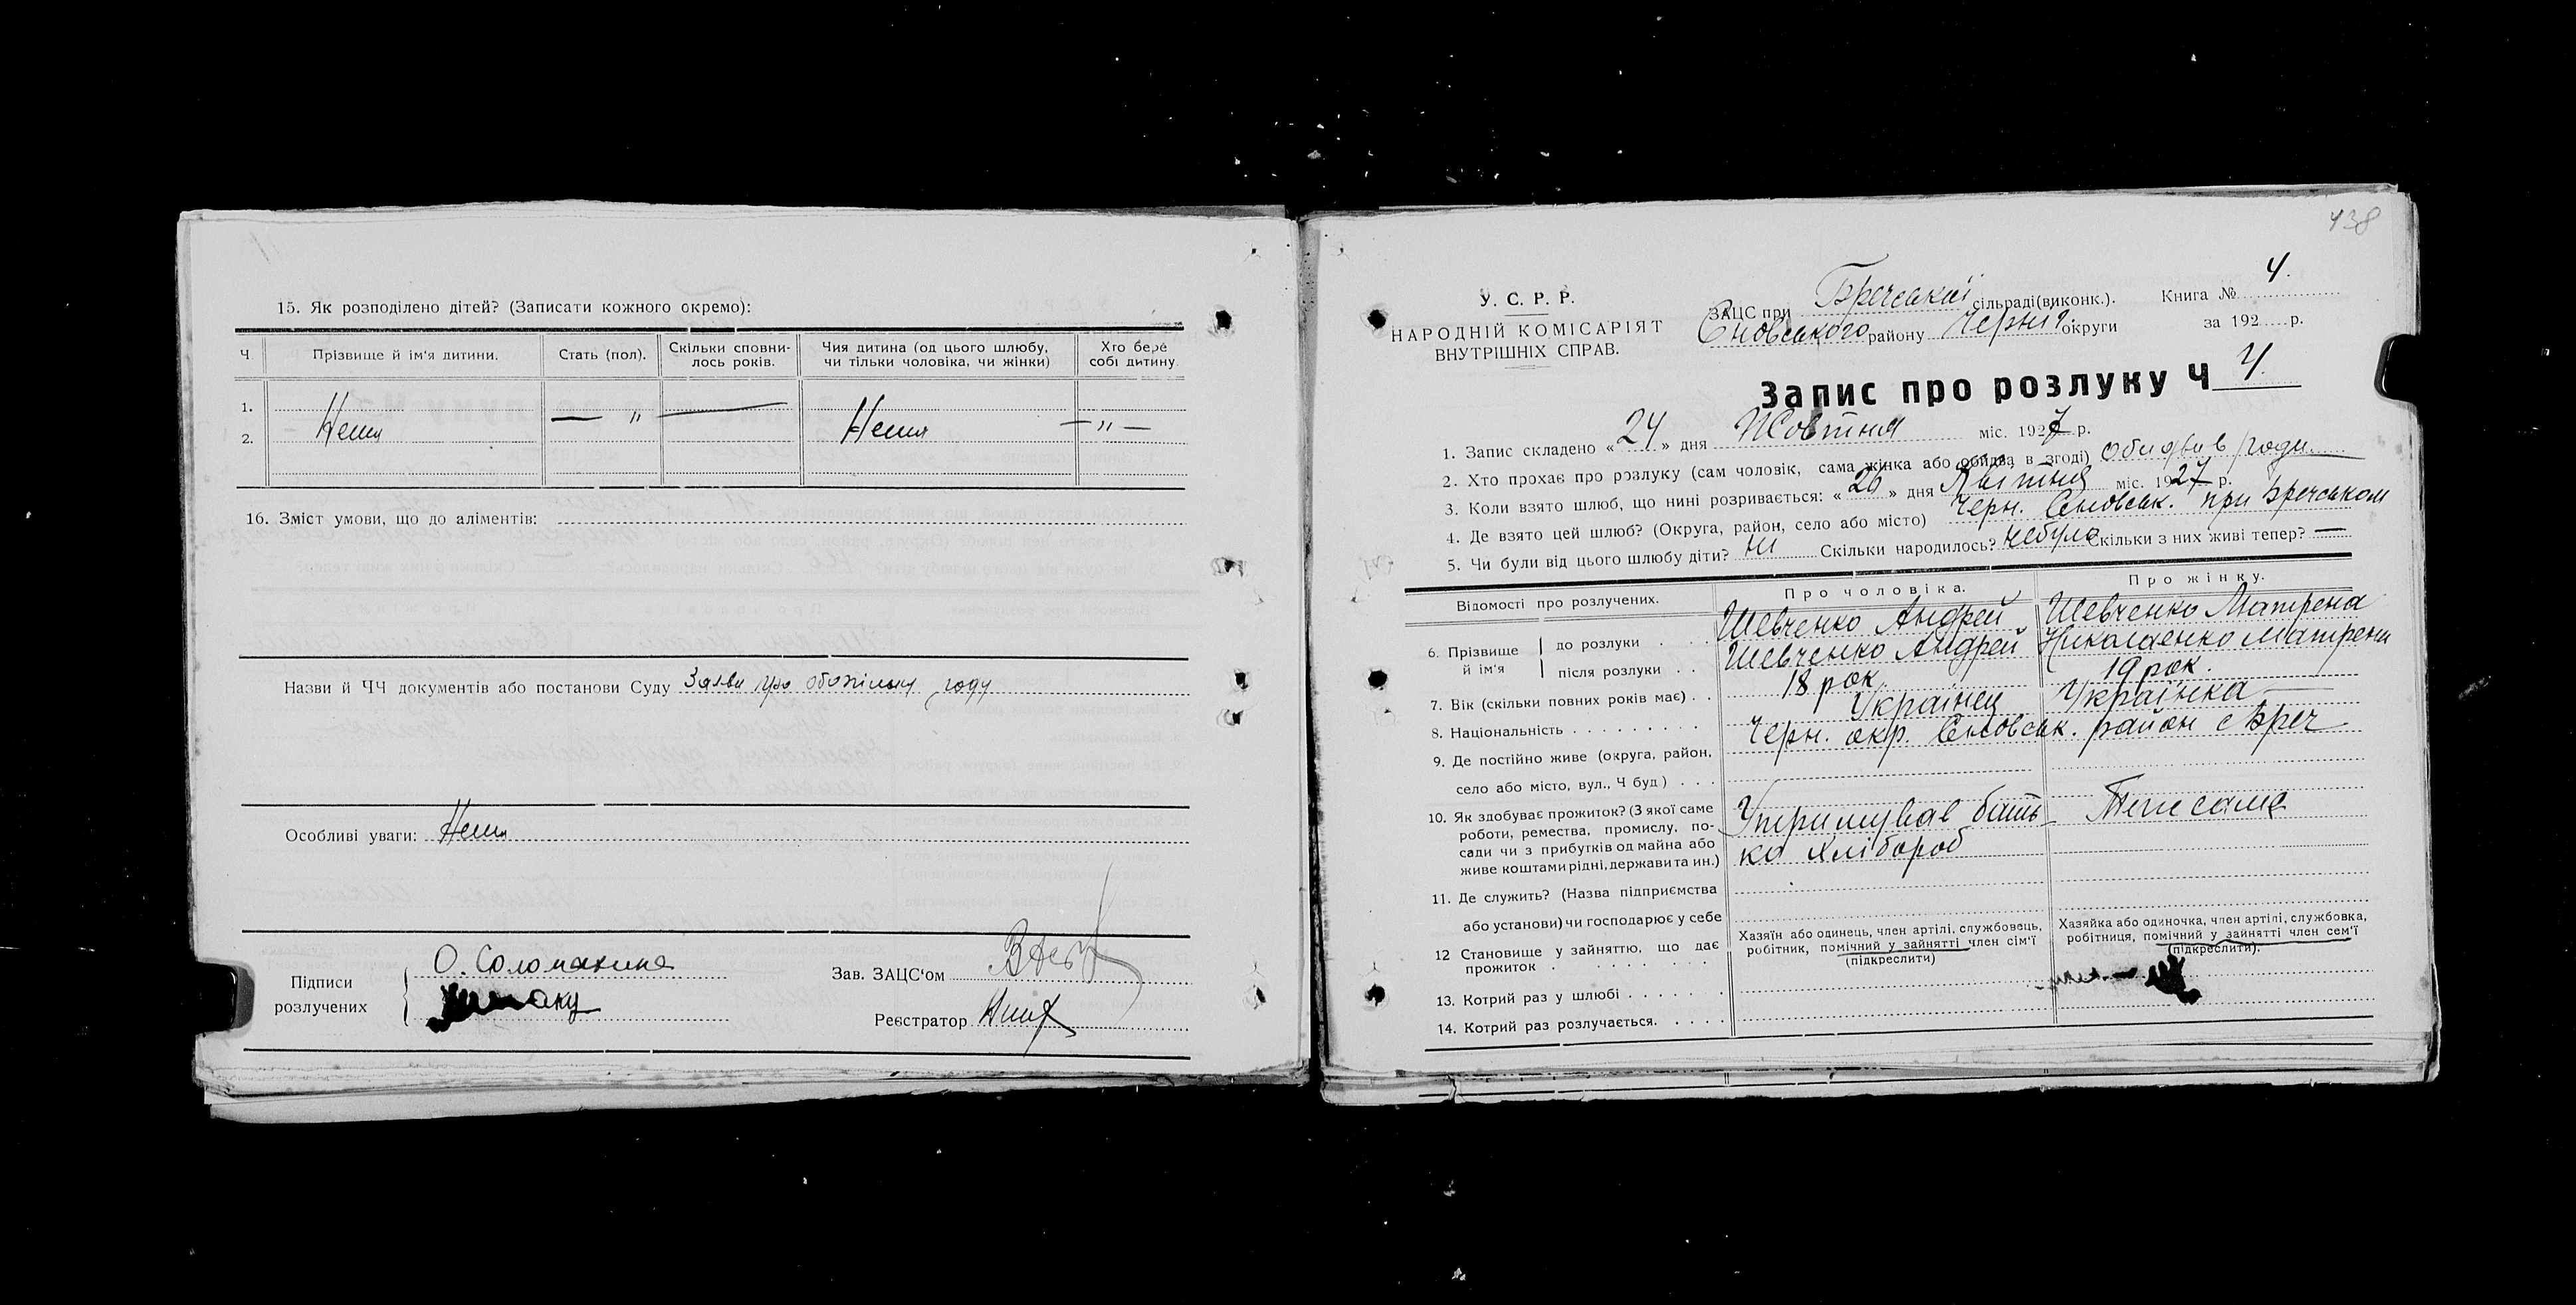 15. Як розподілено дітей? (Записати кожного окремо):
Ч. Прізвище й ім'я дитини. Стать (пол). Скільки сповни- Чия дитина (од цього шлюбу, Хто бере
лось років. чи тільки чоловіка, чи жінки) собі дитину.
1.
2. Нема — " — Нема — " —
16. Зміст умови, що до аліментів:
Назви й ЧЧ документів або постанови Суду Заяви про году
Особливі уваги: Нема
Підписи
розлучених
О. Соломахина
Зав. ЗАЦС'ом
Реєстратор
438
У. С. Р. Р.
НАРОДНІЙ КОМІСАРІЯТ
ВНУТРІШНІХ СПРАВ.
ЗАЦС при Бречській сільраді (виконк.). Книга № 4.
Сновського району Черниг. округи за 192 р.
Запис про розлуку Ч 4.
1. Запис складено « 24 » дня Жовтня міс. 1927 р.
2. Хто прохає про розлуку (сам чоловік, сама жінка або обидва в згоді)
3. Коли взято шлюб, що нині розривається: « 26 » дня Квітня міс. 1927 р.
4. Де взято цей шлюб? (Округа, район, село або місто) Черн. Сновськ. при Бречськом
5. Чи були від цього шлюбу діти? Ні Скільки народилось? небуло Скільки з них живі тепер? —
Відомості про розлучених. Про чоловіка. Про жінку.
6. Прізвище й ім'я
до розлуки Шевченко Андрей Шевченко Матрена
після розлуки Шевченко Андрей Николаенко Матрена
7. Вік (скільки повних років має) 18 рок 19 рок.
8. Національність Українец Українка
9. Де постійно живе (округа, район, Черн. окр. Сновськ. район с Бреч
село або місто, вул., Ч буд.)
10. Як здобуває прожиток? (З якої саме
роботи, ремества, промислу, по-
сади чи з прибутків од майна або
живе коштами рідні, держави та ин.)
Утримував бать-
ко хлібороб
Теж саме
11. Де служить? (Назва підприємства
або установи) чи господарює у себе
12 Становище у зайняттю, що дає
прожиток
Хазяїн або одинець, член артілі, службовець,
робітник, помічний у зайнятті член сім'ї
(підкреслити)
Хазяйка або одиночка, член артілі, службовка,
робітниця, помічний у зайнятті член сем'ї
(підкреслити).
13. Котрий раз у шлюбі
14. Котрий раз розлучається.